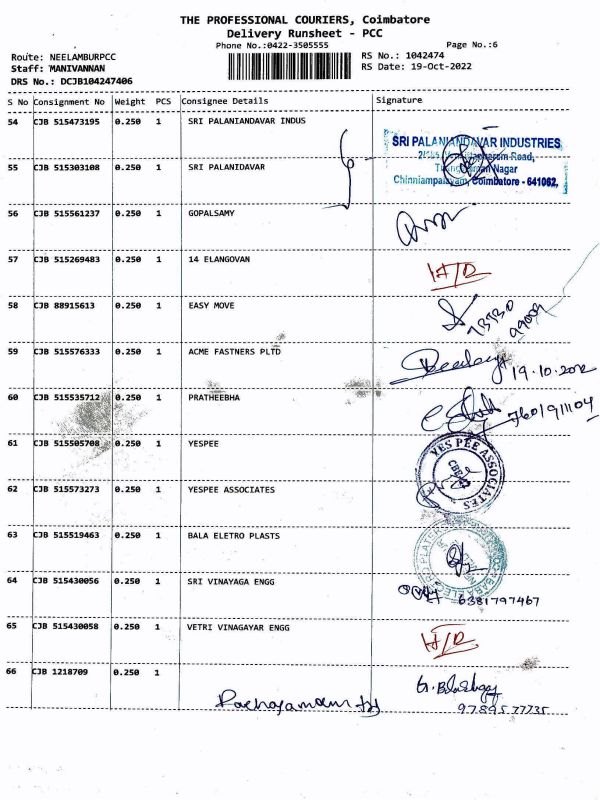 THE PROFESSIONAL COURIERS, Coimbatore
Delivery Runsheet - PCC
Phone No.:0422-3505555
Page No.:6
Route: NEELAMBURPCC
RS No.: 1042474
Staff: MANIVANNAN
RS Date: 19-Oct-2022
DRS No.: DCJB104247406
S No Consignment No Weight PCS Consignee Details Signature
54 CJB 515473195 0.250 1 SRI PALANIANDAVAR INDUS
SRI PALANIANDAVAR INDUSTRIES
Road,
Nagar
Chinniampalayam, Coimbatore - 641062.
55 CJB 515303108 0.250 1 SRI PALANIDAVAR
56 CJB 515561237 0.250 1 GOPALSAMY
57 CJB 515269483 0.250 1 14 ELANGOVAN
58 CJB 88915613 0.250 1 EASY MOVE
59 CJB 515576333 0.250 1 ACME FASTNERS PLTD
60 CJB 515535712 0.250 1 PRATHEEBHA
61 CJB 515505708 0.250 1 YESPEE
YES PEE ASSOCIATES
62 CJB 515573273 0.250 1 YESPEE ASSOCIATES
63 CJB 515519463 0.250 1 BALA ELETRO PLASTS
64 CJB 515430056 0.250 1 SRI VINAYAGA ENGG
6381797467
65 CJB 515430058 0.250 1 VETRI VINAGAYAR ENGG
66 CJB 1218709 0.250 1